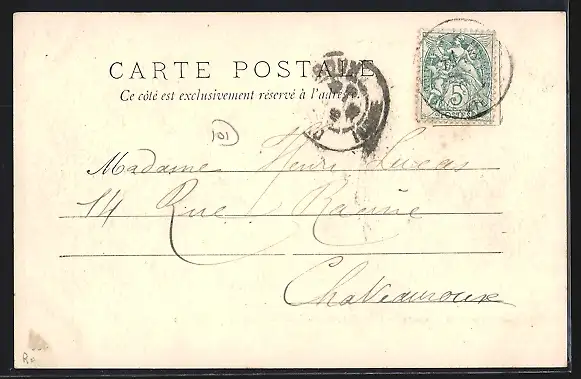 CARTE POSTALE
Ce côté est exclusivement réservé à l'adresse.
101
Madame Henri Lucas
14 Rue Racine
Chateauroux
5